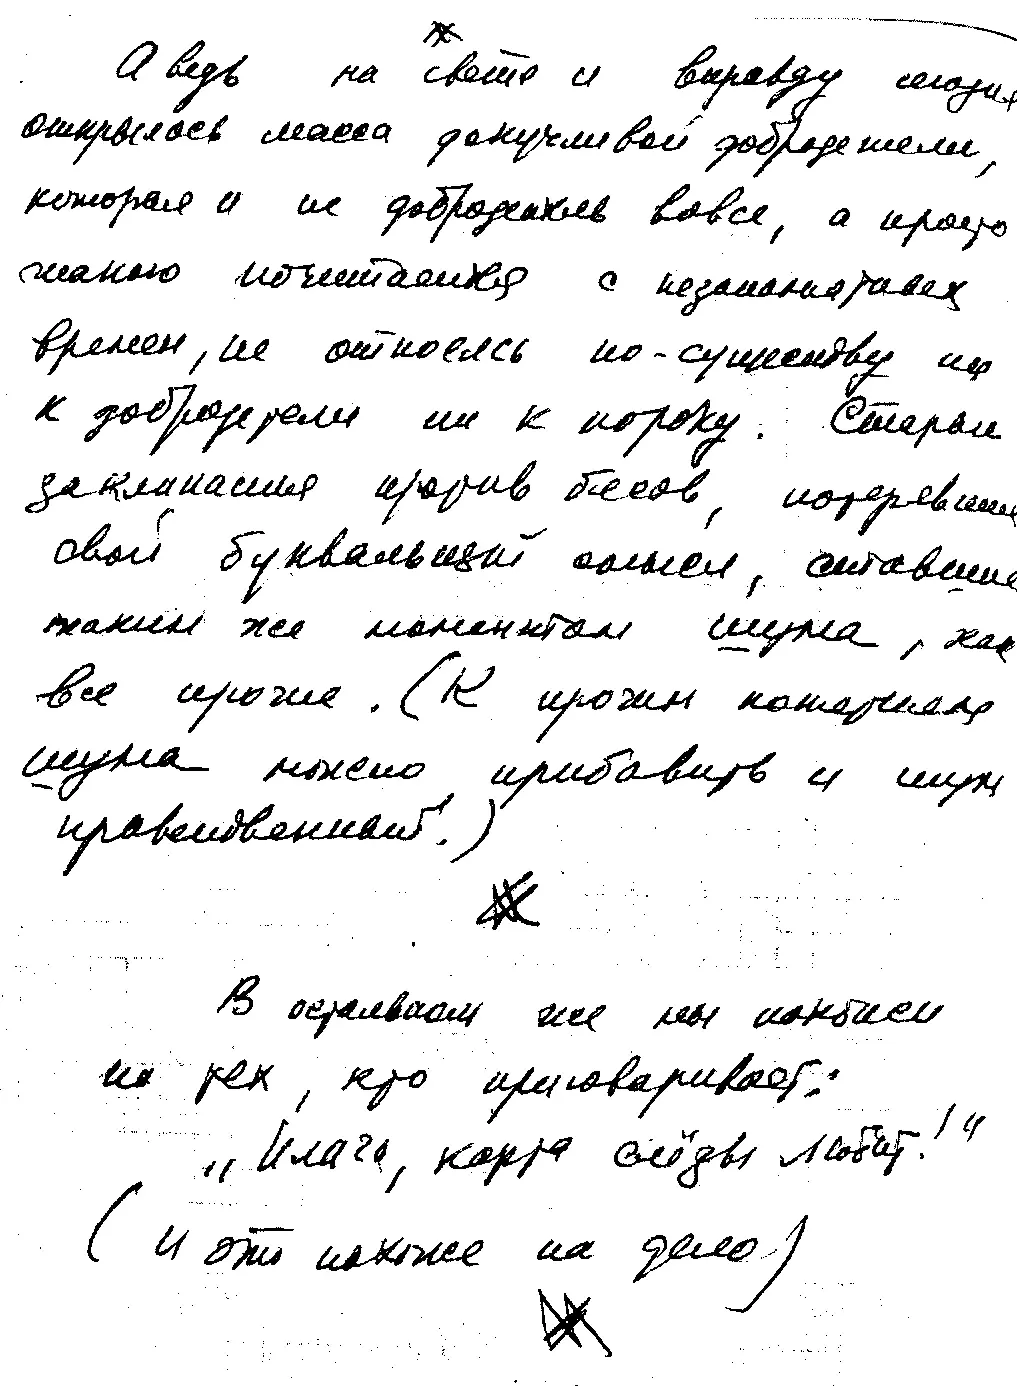 А ведь на свете и вправду
открылось масса докучливой добродетели,
которая и не добродетель вовсе, а просто
такою почитается с незапамятных
времен, не относясь по-существу ни
к добродетели ни к пороку. Старые
заклинания против бесов, потерявшие
свой буквальный смысл, ставшие
таким же моментом шума, как
все прочие. (К прочим
шума можно прибавить и шум
нравственный.)
В остальном же мы похожи
на тех, кто приговаривает:
„Плачь, карта слёзы любит!"
(и это похоже на дело)